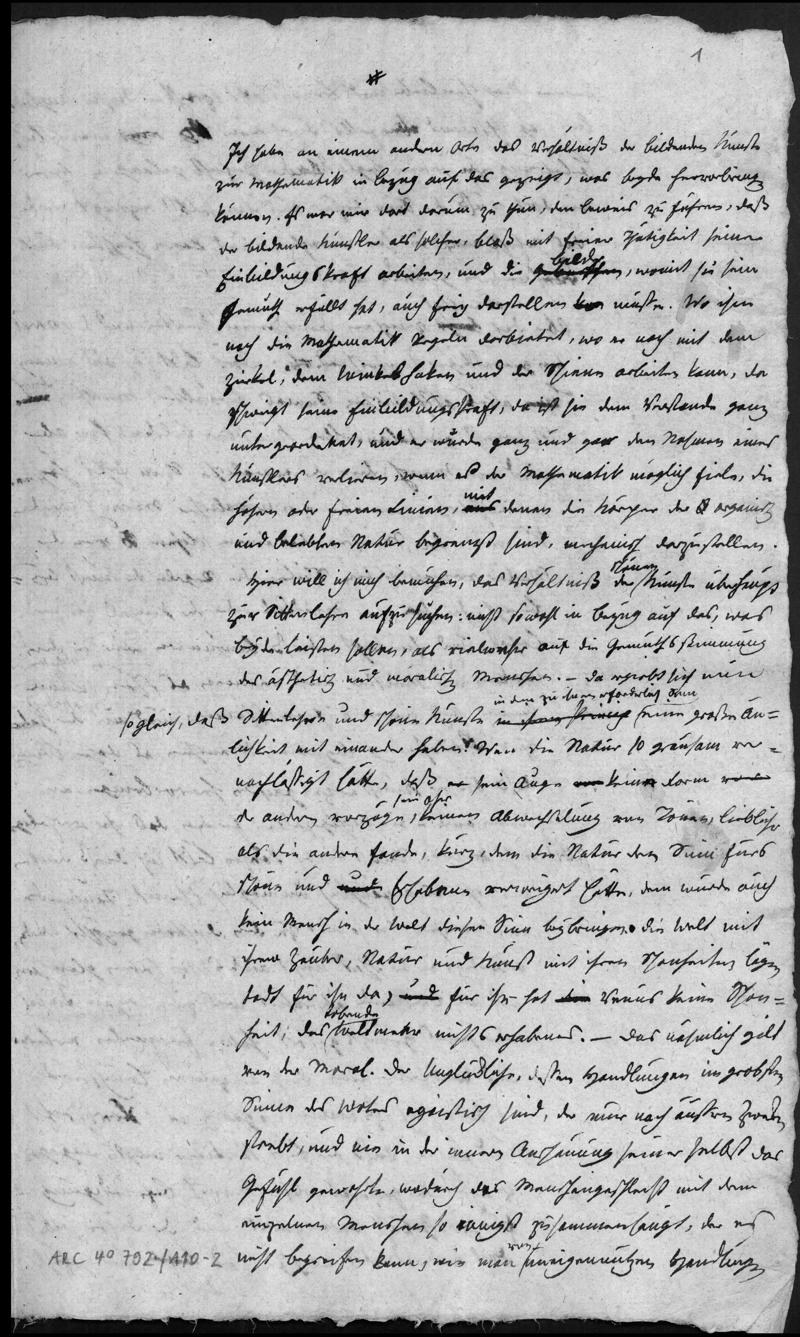 1
#
Ich habe an einem andern Orte das Verhältniß der bildenden Künste
zur Mathematik in bezug auf das gezeigt, was beyde hervorbringen
können. Es war mir dort darum zu thun, den beweis zu führen, daß
der bildende Künstler als solcher, bloß mit freier Thätigkeit seiner
bilder
Einbildungskraft arbeiten, und die, womit sie sein
Gemüth erfüllt hat, auch frey darstellen müsse. Wo ihm
noch die Mathematik Regeln darbietet, wo er noch mit dem
Zirkel, dem Winkelhaken und der Schiene arbeiten kann, da
schweigt seine Einbildungskraft, da ist sie dem Verstande ganz
untergeordnet, und er würde ganz und gar den Nahmen eines
Künstlers verlieren, wenn es der Mathematik möglich fiele, die
mit
höhern oder freien Linien, denen die Körper der organisch
und belebten Natur begrenzt sind, mechanisch darzustellen.
schönen
Hier will ich mich bemühen, das Verhältniß der Künste überhaupt
zur Sittenlehre aufzusuchen: nicht sowohl in bezug auf das, was
beyde leisten sollen, als vielmehr auf die Gemüthsstimmung
des ästhetisch und moralisch Menschen. – Da ergiebt sich nun
in dem zu ihnen erforderlich Sinn
sogleich, daß Sittenlehre und schöne Künste eine große Än=
lichkeit mit einander haben. Wen die Natur so grausam ver=
nachlässigt hätte, daß sein Auge keine Form
sein Ohr
der andern vorzöge, keinen Abwechselung von Tönen, lieblicher
als die andere fände, kurz, dem die Natur den Sinn fürs
Schöne und Erhabene verweigert hätte, dem würde auch
kein Mensch in der Welt diesen Sinn beybringen. die Welt mit
ihrem Zauber, Natur und Kunst mit ihren Schönheiten lägen
todt für ihn da, für ihn hat Venus keine Schön=
tobende
heit, das Weltmehr nichts erhabenes. – Das nähmlich gilt
von der Moral. Der Unglückliche, dessen Handlungen im grobsten
Sinne des Wortes egoistisch sind, der nur nach äussern Zwecken
strebt, und nie in der innern Anschauung seiner selbst das
Gefühl gewahrte, wodurch das Menschengeschlecht mit dem
einzelnen Menschen so innigst zusammenhängt, der es
von
nicht begreifen kann, wie man uneigennützen Handlungen
ARC 4° 792/A10-2